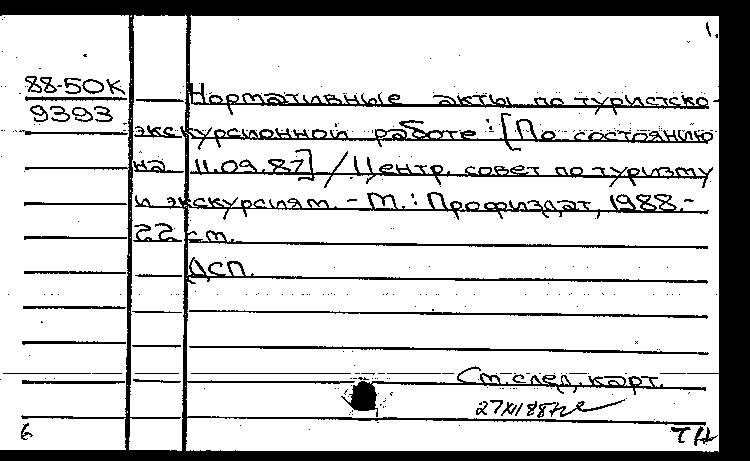 1.
88-50К
9393
Нормативные акты по туристско-
экскурсионной работе : [По состоянию
на 11.09.87] / Центр. совет по туризму
и экскурсиям. - М. : Профиздат, 1988.-
22 см.
ДСП.
См. след. карт.
27 XI 88
6